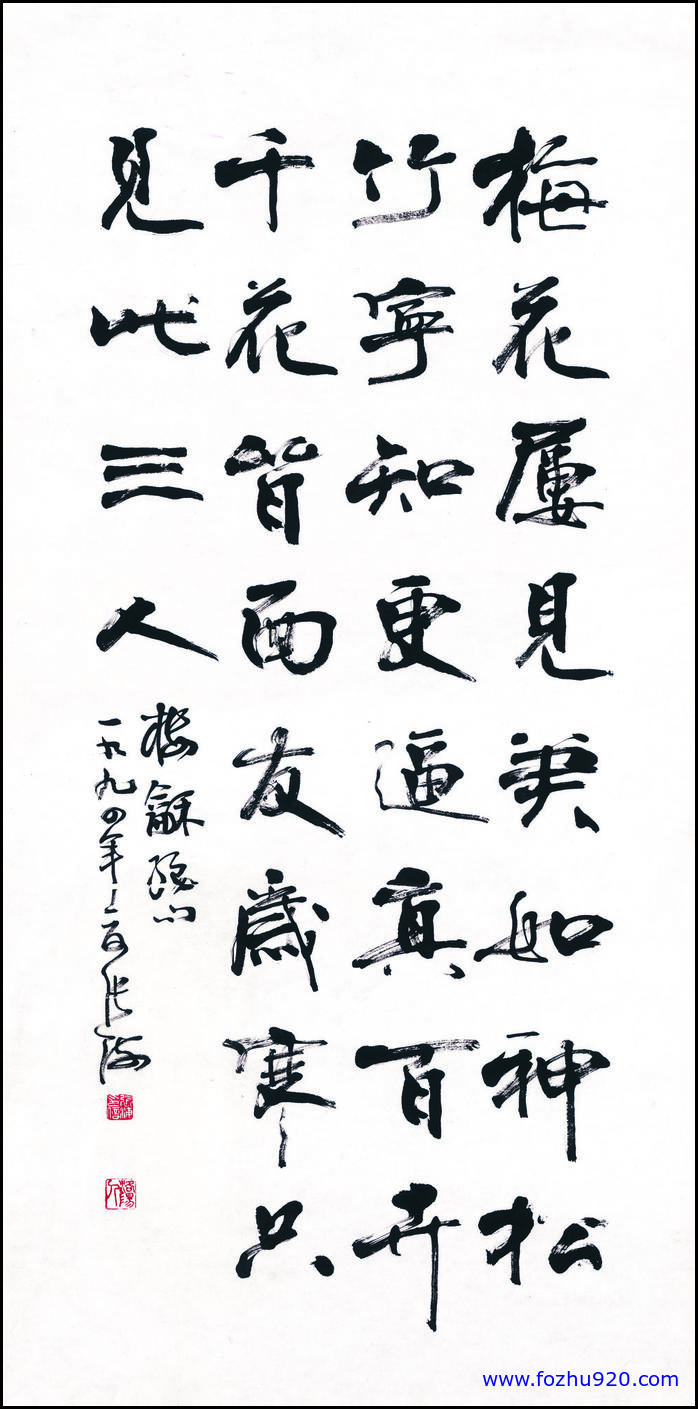 梅花屢見如神松
竹寧知更逼真百卉
千花皆面友歲寒只
見此三人
一九九四年張海
www.fozhu920.com